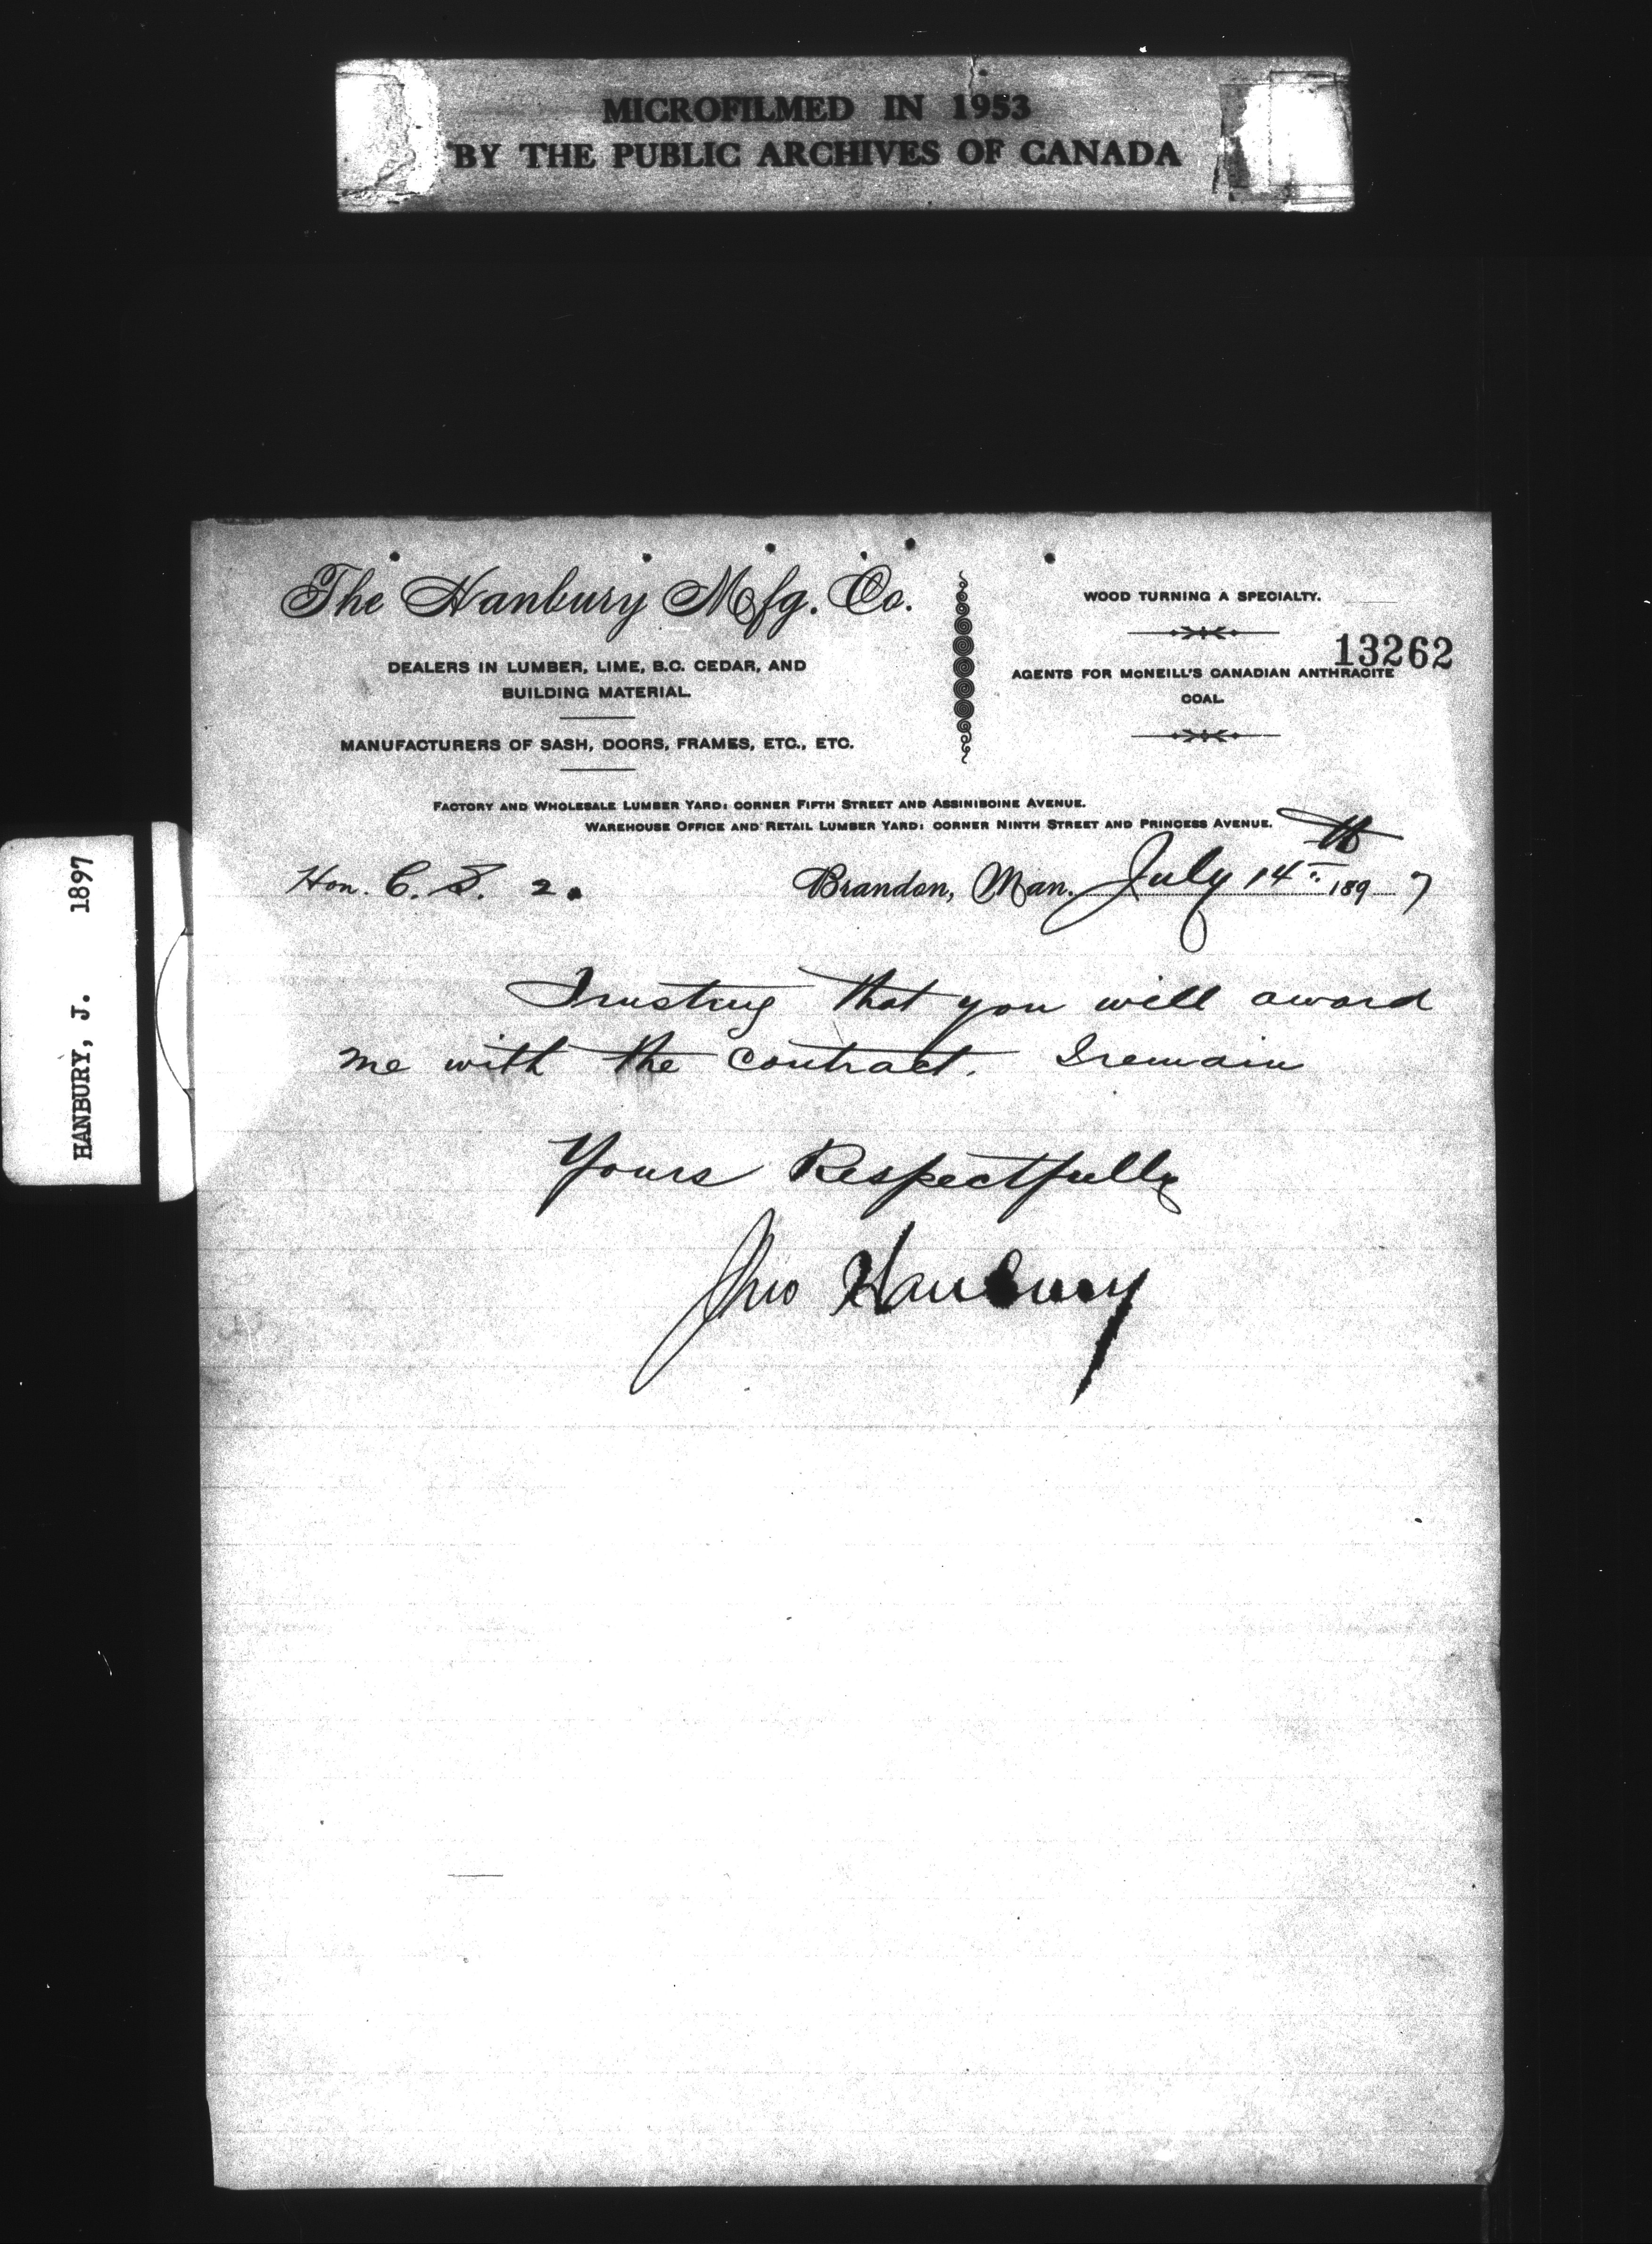 MICROFILMED IN 1953
BY THE PUBLIC ARCHIVES OF CANADA
HANBURY, J. 1897
The Hanbury Mfg. Co.
DEALERS IN LUMBER, LIME, B.C. CEDAR, AND
BUILDING MATERIAL.
MANUFACTURERS OF SASH, DOORS, FRAMES, ETC., ETC.
WOOD TURNING A SPECIALTY.
13262
AGENTS FOR McNEILL'S CANADIAN ANTHRACITE
COAL.
FACTORY AND WHOLESALE LUMBER YARD: CORNER FIFTH STREET AND ASSINIBOINE AVENUE.
WAREHOUSE OFFICE AND RETAIL LUMBER YARD: CORNER NINTH STREET AND PRINCESS AVENUE.
Hon. C. S. 2. Brandon, Man. July 14th 1897
Trusting that you will award
me with the contract. I remain
Yours Respectfully
Jno Hanbury